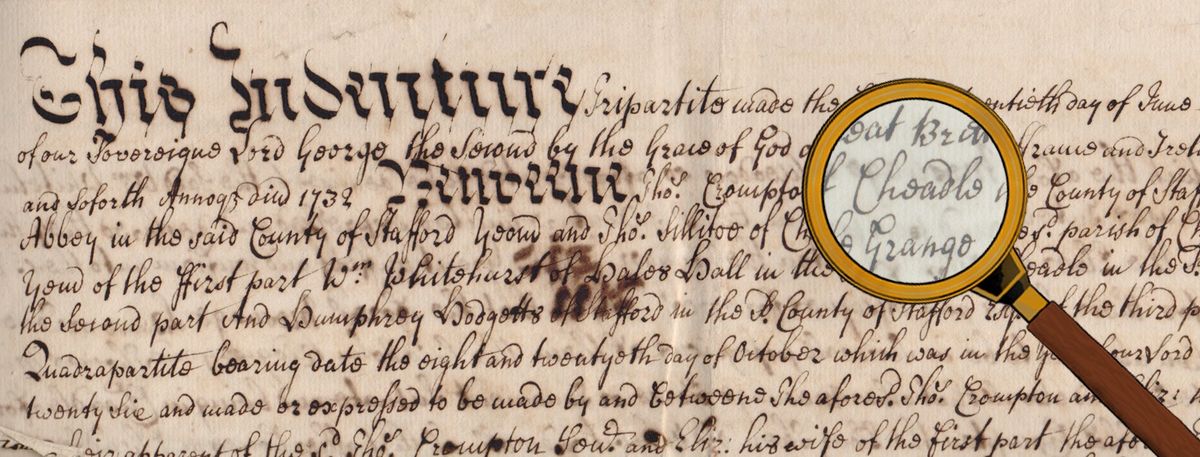 This Indenture Tripartite made the entieth day of June
of our Sovereigne Lord George the Second by the Grace of God o eat Brit ffrance and Irel
and soforth Annoq3 Dñi 1732 Betweene Thos. Crompto f Cheadle he County of Staf
Abbey in the said County of Stafford Yeom̄ and Thos. Sillitoe of Ch le Grange esd. parish of Ch
Yeom̄ of the ffirst part Wm. Whitehurst of Hales Hall in the eadle in the S
the Second part And Humphrey Hodgetts of Stafford in the Sd. County of Stafford f the third p
Quadrapartite bearing date the eight and twentyeth day of October which was in the Y our Lord
twenty Six and made or expressed to be made by and Betweene The afores. Thos. Crompton an Eliz:
eir apparent of the sd. Thos. Crompton Senr. and Eliz: his wife of the first part the afo